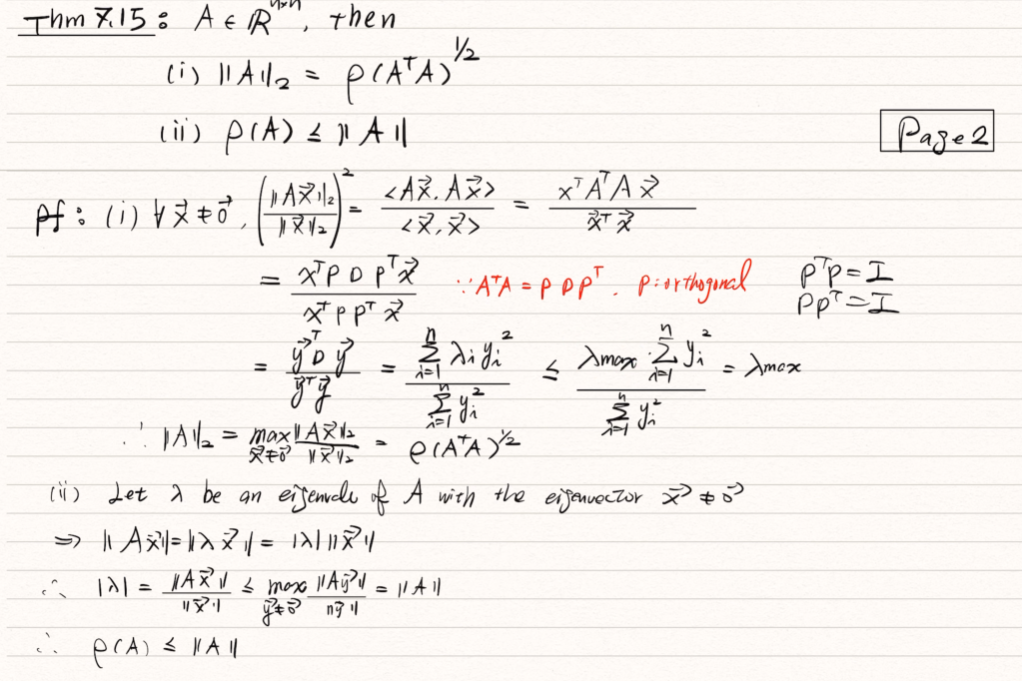 Thm 7.15: A ∈ ℝ^{n×n}, then
(i) ‖A‖₂ = ρ(AᵀA)^{1/2}
(ii) ρ(A) ≤ ‖A‖
Page 2
pf: (i) ∀ x⃗ ≠ 0⃗, (‖Ax⃗‖₂ / ‖x⃗‖₂)² = <Ax⃗, Ax⃗> / <x⃗, x⃗> = xᵀAᵀA x⃗ / x⃗ᵀx⃗
= xᵀP D Pᵀx⃗ / xᵀP Pᵀ x⃗ ∵ AᵀA = P D Pᵀ. P: orthogonal PᵀP = I
PPᵀ = I
= y⃗ᵀD y⃗ / y⃗ᵀy⃗ = Σ_{i=1}^{n} λᵢ yᵢ² / Σ_{i=1}^{n} yᵢ² ≤ λmax · Σ_{i=1}^{n} yᵢ² / Σ_{i=1}^{n} yᵢ² = λmax
∴ ‖A‖₂ = max_{x⃗≠0⃗} ‖Ax⃗‖₂ / ‖x⃗‖₂ = ρ(AᵀA)^{1/2}
(ii) Let λ be an of A with the eigenvector x⃗ ≠ 0⃗
⇒ ‖Ax⃗‖ = ‖λx⃗‖ = |λ| ‖x⃗‖
∴ |λ| = ‖Ax⃗‖ / ‖x⃗‖ ≤ max_{y⃗≠0⃗} ‖Ay⃗‖ / ‖y⃗‖ = ‖A‖
∴ ρ(A) ≤ ‖A‖